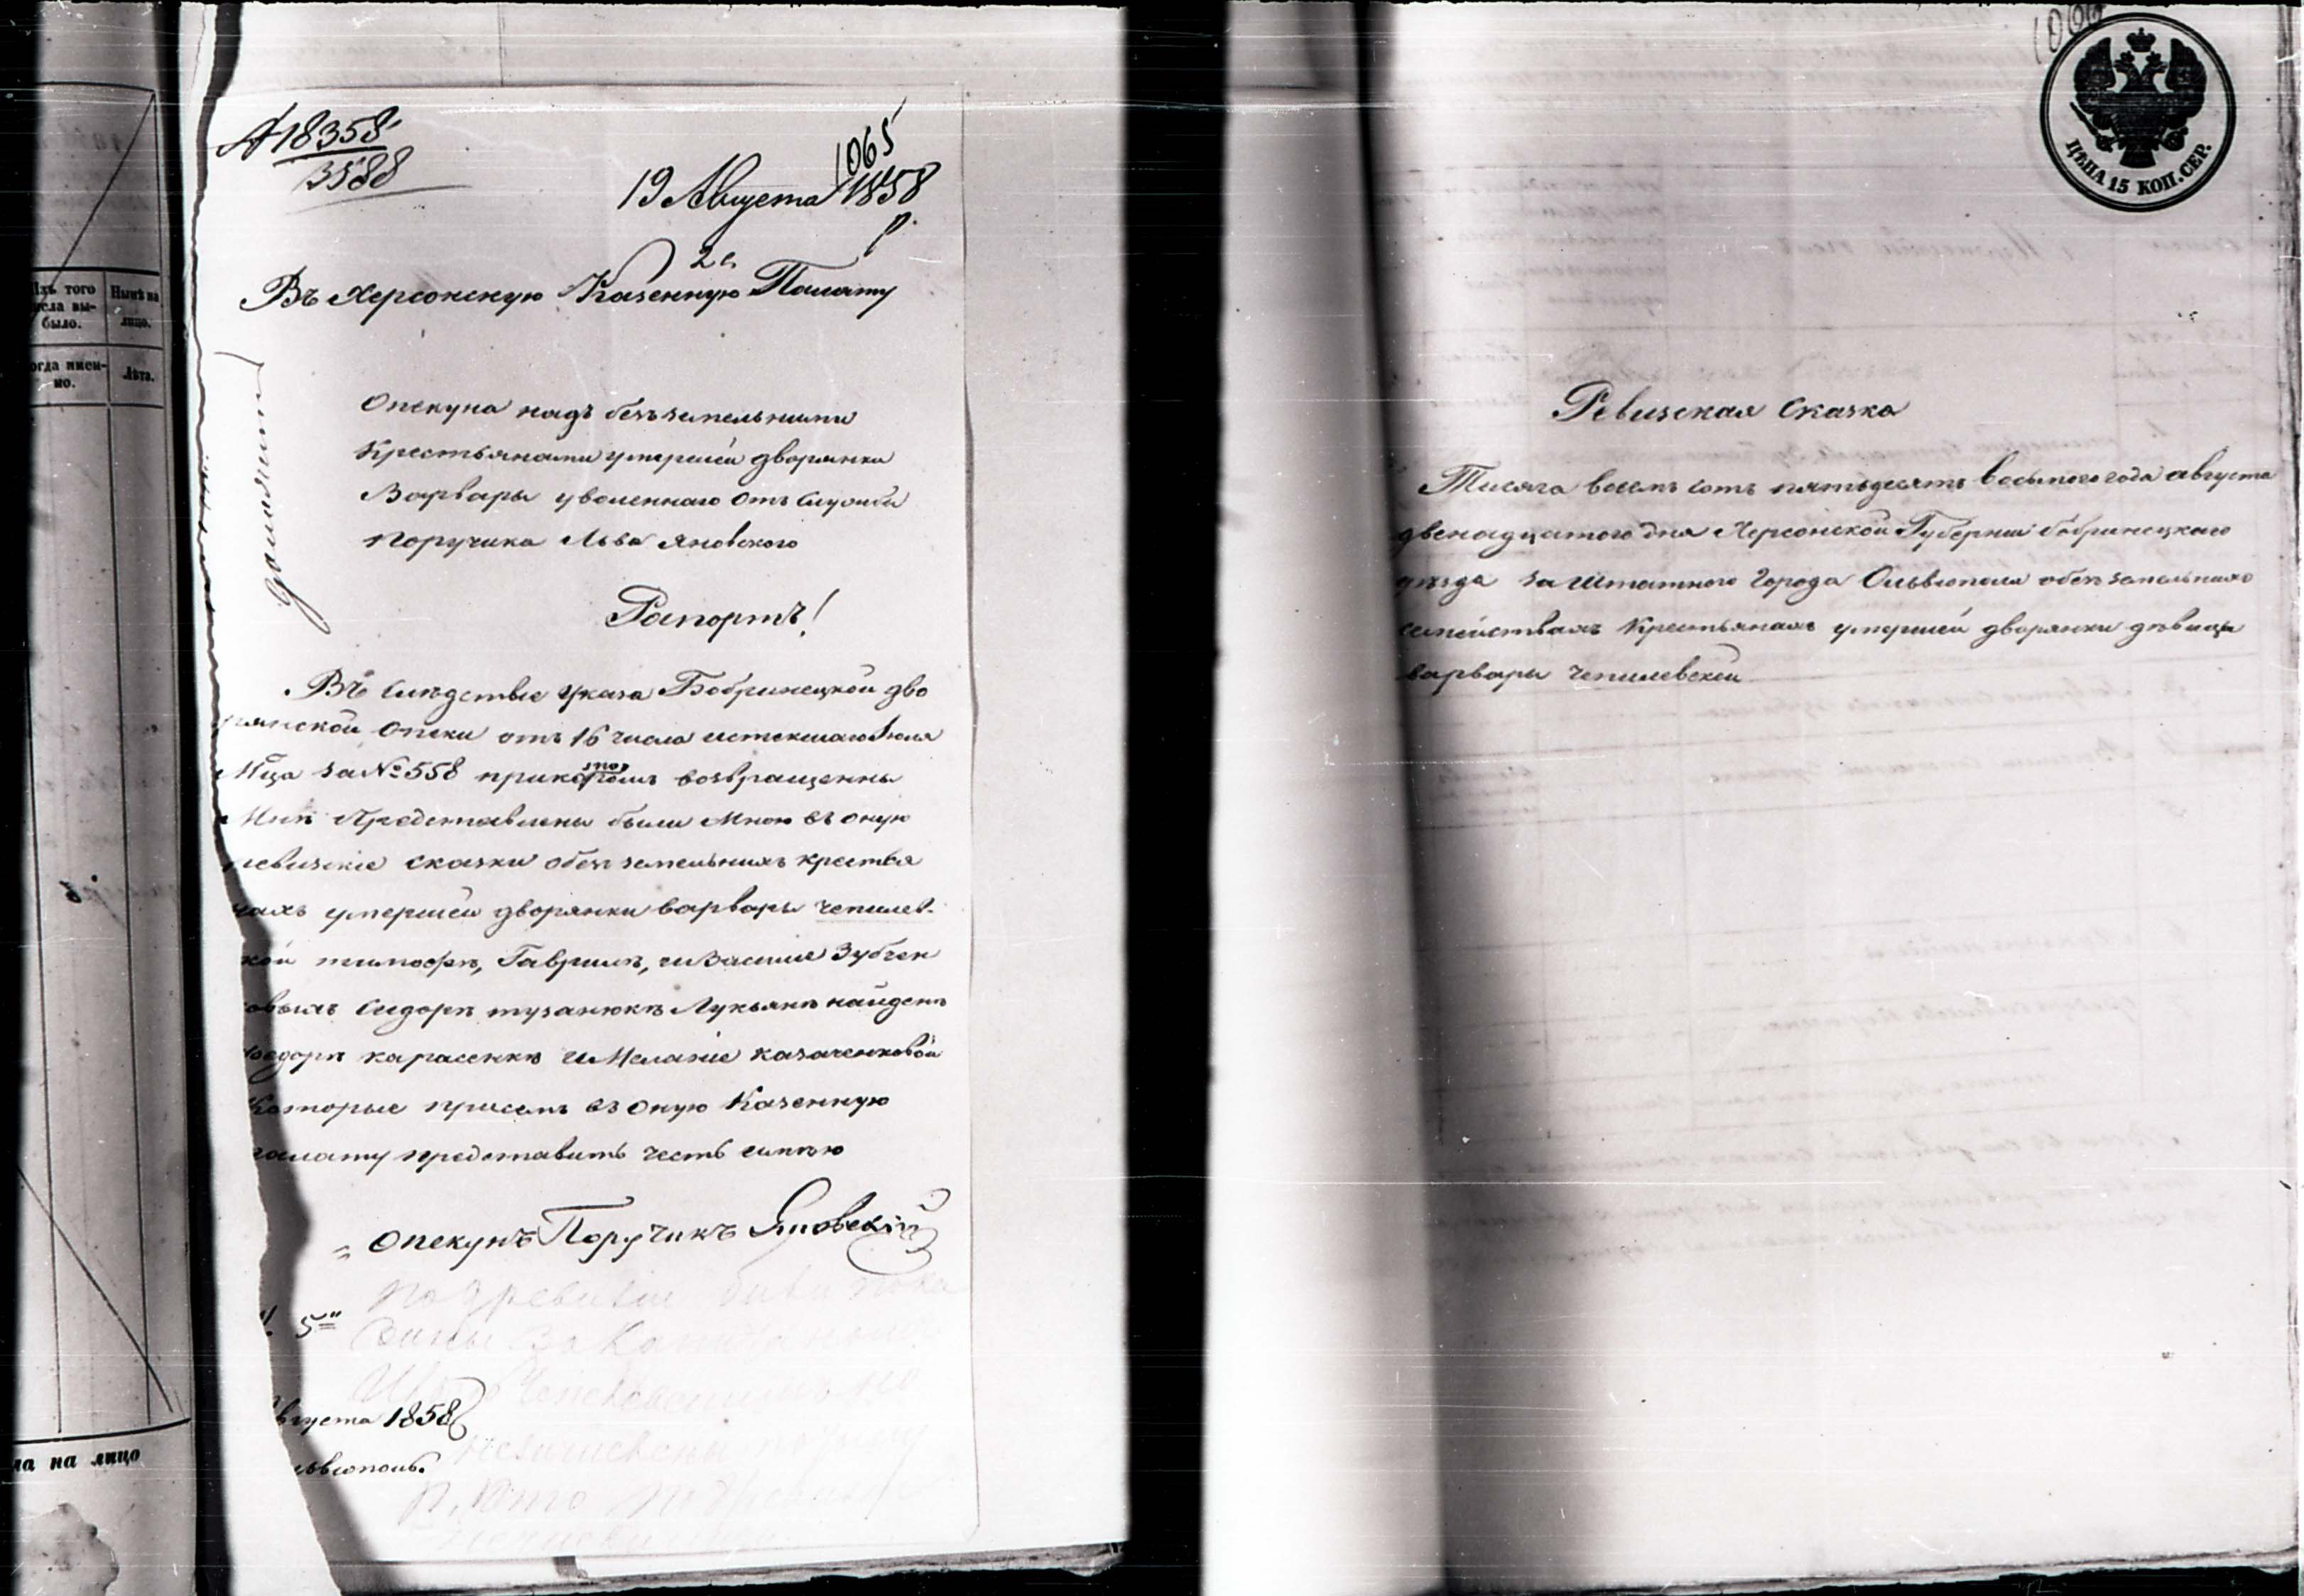 Изъ того
числа вы-
было.
Нынѣ на
лицо.
Когда имен-
но.
Лѣта.
ла на лицо
№ 18358
3588
1065
19 Августа 1858
2 е.
Въ Херсонскую Казенную Палату
Опекуна надъ безъземельными
Крестьянами умершей дворянки
Варвары уволеннаго отъ службы
Поручика Льва Яновского
Рапортъ!
Въ слѣдствіе указа Бобринецкой дво
рянской опеки отъ 16 числа истекшаго Іюля
М-ца за № 558 прикоторомъ возвращенны
Мнѣ Представлены были Мною въ оную
ревизскіе сказки обезъземельныхъ крестья
нахъ умершей дворянки варвары чепилев-
кой тимофѣ, Гаврилѣ, и Василіе Зубчен
ковыхъ Сидорѣ тузанюкѣ Лукьянѣ найденѣ
Федорѣ карасенкѣ и Меланіе казаченковой
Которые присемъ въ оную Казенную
палату представить честь имѣю
Опекунъ Поручикъ Яновскій
5"
Августа 1858
Ольвіополь.
1066
ЦѢНА 15 КОП. СЕР.
Ревизская Сказка
Тисяча восемъ сотъ пятьдесятъ восьмого года августа
двенадцатого дня Херсонской Губерніи бобринецкаго
уѣзда заштатного города Ольвіополя обезъземельныхъ
семействахъ Крестьянахъ умершей дворянки дѣвицы
варвары Чепилевской